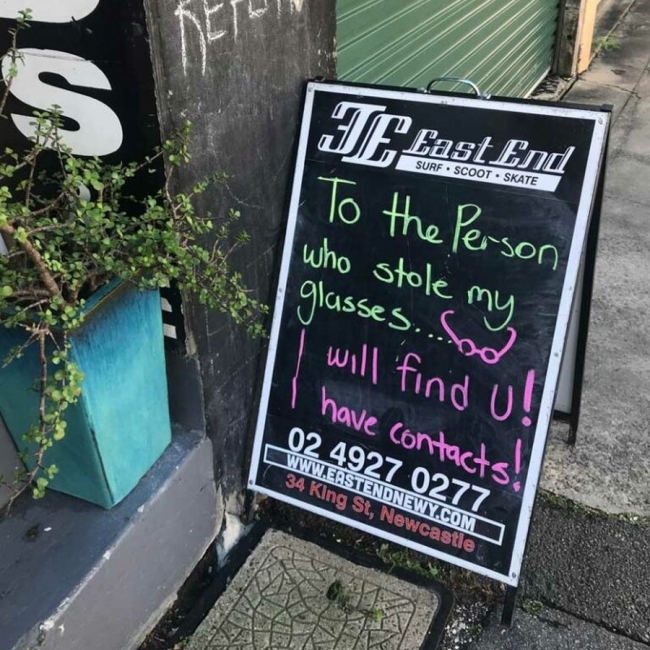 S
REFU
East End
SURF • SCOOT • SKATE
To the Person
who stole my
glasses.....
I will find U!
I have contacts!
02 4927 0277
WWW.EASTENDNEWY.COM
34 King St, Newcastle